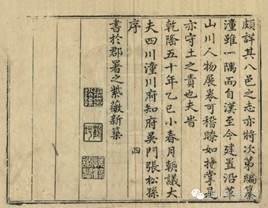 頗詳其八邑之志亦將次第編纂
潼雖一隅而自漢至今建置沿革
山川人物展卷可稽瞭如指掌是
亦守土之責也夫旹
乾隆五十年乙巳小春月朝議大
夫四川潼川府知府吳門張松孫
書於郡署之紫薇新築
序
四